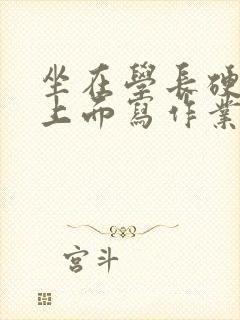 坐在學長硬
上面寫作業
宮斗